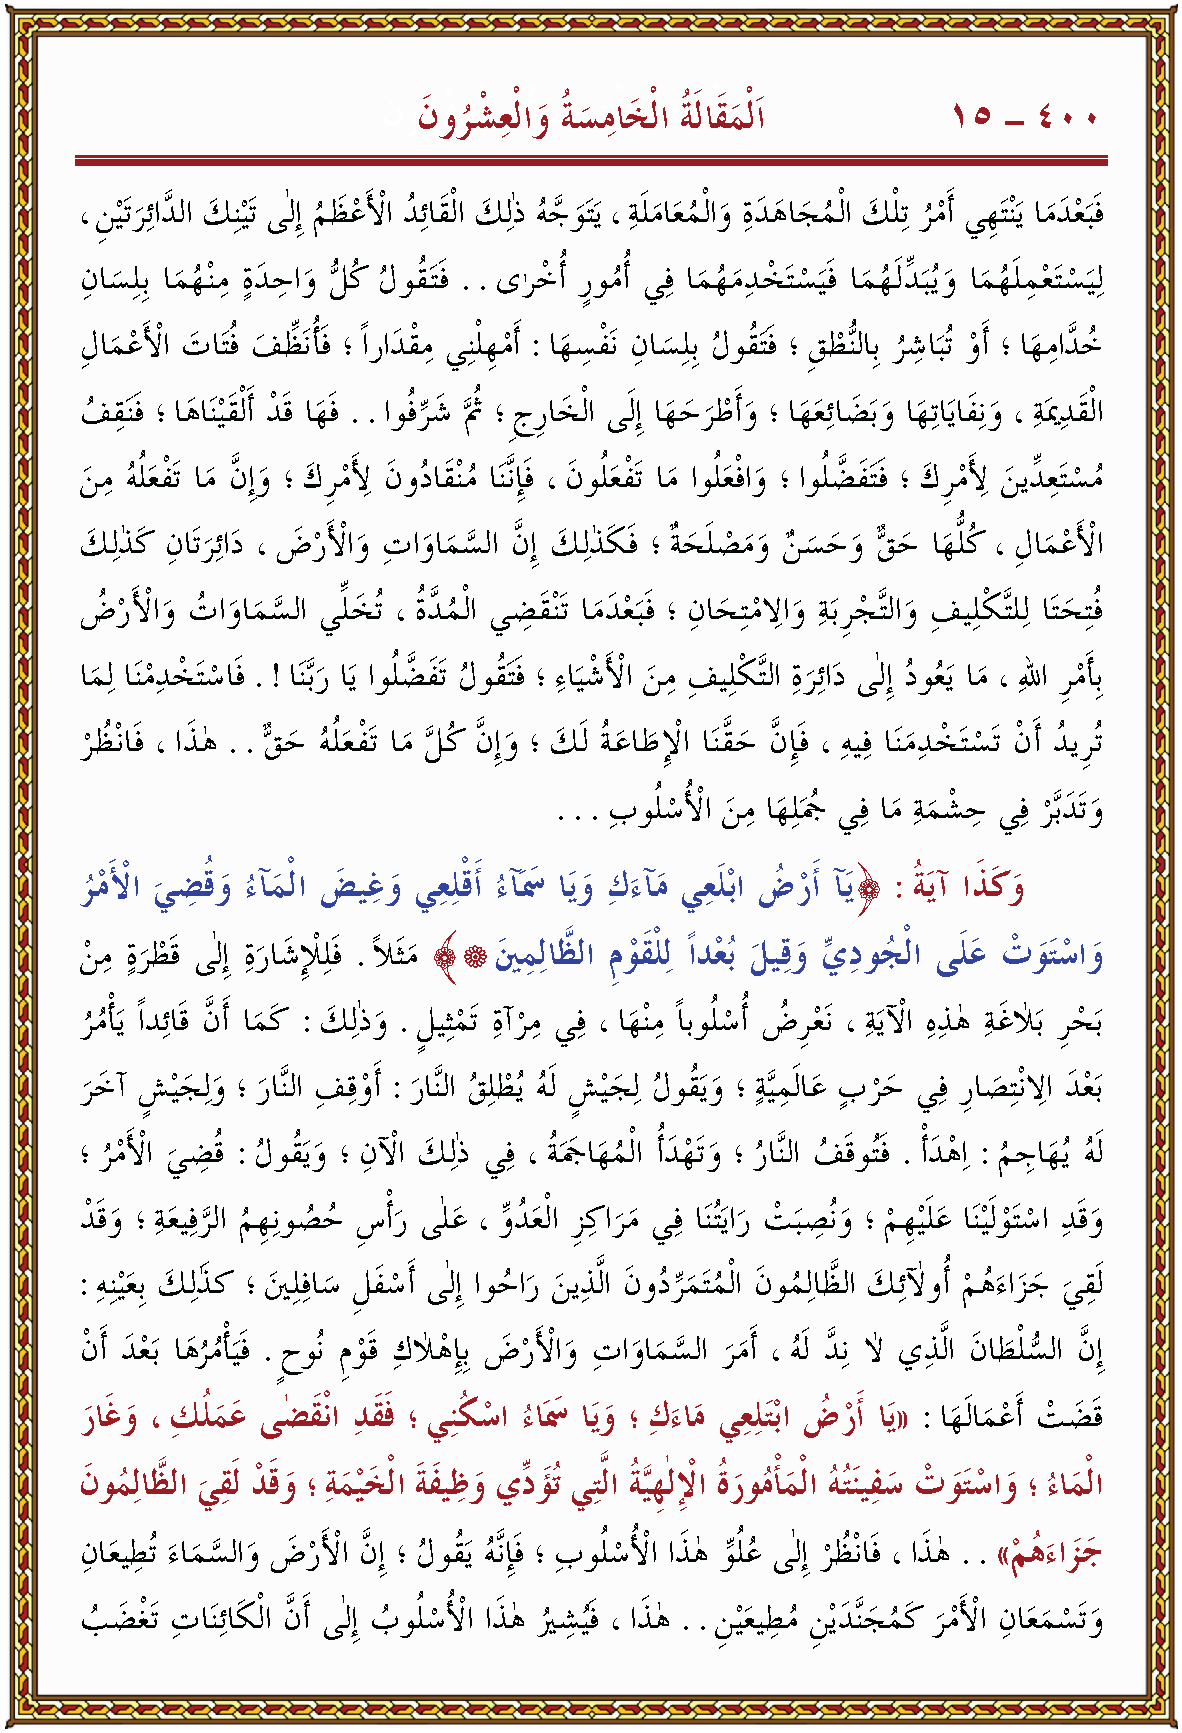 ٤٠٠ – ١٥ اَلْمَقَالَةُ الْخَامِسَةُ وَالْعِشْرُونَ
فَبَعْدَمَا يَنْتَهِي أَمْرُ تِلْكَ الْمُجَاهَدَةِ وَالْمُعَامَلَةِ ، يَتَوَجَّهُ ذٰلِكَ الْقَائِدُ الْأَعْظَمُ إِلٰى تَيْنِكَ الدَّائِرَتَيْنِ ،
لِيَسْتَعْمِلَهُمَا وَيُبَدِّلَهُمَا فَيَسْتَخْدِمَهُمَا فِي أُمُورٍ أُخْرٰى . . فَتَقُولُ كُلُّ وَاحِدَةٍ مِنْهُمَا بِلِسَانِ
خُدَّامِهَا ؛ أَوْ تُبَاشِرُ بِالنُّطْقِ ؛ فَتَقُولُ بِلِسَانِ نَفْسِهَا : أَمْهِلْنِي مِقْدَاراً ؛ فَأُنَظِّفَ فُتَاتَ الْأَعْمَالِ
الْقَدِيمَةِ ، وَنِفَايَاتِهَا وَبَضَائِعَهَا ؛ وَأَطْرَحَهَا إِلَى الْخَارِجِ ؛ ثُمَّ شَرِّفُوا . . فَهَا قَدْ أَلْقَيْنَاهَا ؛ فَنَقِفُ
مُسْتَعِدِّينَ لِأَمْرِكَ ؛ فَتَفَضَّلُوا ؛ وَافْعَلُوا مَا تَفْعَلُونَ ، فَإِنَّنَا مُنْقَادُونَ لِأَمْرِكَ ؛ وَإِنَّ مَا تَفْعَلُهُ مِنَ
الْأَعْمَالِ ، كُلُّهَا حَقٌّ وَحَسَنٌ وَمَصْلَحَةٌ ؛ فَكَذٰلِكَ إِنَّ السَّمَاوَاتِ وَالْأَرْضَ ، دَائِرَتَانِ كَذٰلِكَ
فُتِحَتَا لِلتَّكْلِيفِ وَالتَّجْرِبَةِ وَالِامْتِحَانِ ؛ فَبَعْدَمَا تَنْقَضِي الْمُدَّةُ ، تُخَلِّي السَّمَاوَاتُ وَالْأَرْضُ
بِأَمْرِ اللهِ ، مَا يَعُودُ إِلٰى دَائِرَةِ التَّكْلِيفِ مِنَ الْأَشْيَاءِ ؛ فَتَقُولُ تَفَضَّلُوا يَا رَبَّنَا ! . فَاسْتَخْدِمْنَا لِمَا
تُرِيدُ أَنْ تَسْتَخْدِمَنَا فِيهِ ، فَإِنَّ حَقَّنَا الْإِطَاعَةُ لَكَ ؛ وَإِنَّ كُلَّ مَا تَفْعَلُهُ حَقٌّ . . هٰذَا ، فَانْظُرْ
وَتَدَبَّرْ فِي حِشْمَةِ مَا فِي جُمَلِهَا مِنَ الْأُسْلُوبِ . . .
وَكَذَا آيَةُ : ﴿يَآ أَرْضُ ابْلَعِي مَآءَكِ وَيَا سَمَآءُ أَقْلِعِي وَغِيضَ الْمَآءُ وَقُضِيَ الْأَمْرُ
وَاسْتَوَتْ عَلَى الْجُودِيِّ وَقِيلَ بُعْداً لِلْقَوْمِ الظَّالِمِينَ﴾ مَثَلاً . فَلِلْإِشَارَةِ إِلٰى قَطْرَةٍ مِنْ
بَحْرِ بَلَاغَةِ هٰذِهِ الْآيَةِ ، نَعْرِضُ أُسْلُوباً مِنْهَا ، فِي مِرْآةِ تَمْثِيلٍ . وَذٰلِكَ : كَمَا أَنَّ قَائِداً يَأْمُرُ
بَعْدَ الِانْتِصَارِ فِي حَرْبٍ عَالَمِيَّةٍ ؛ وَيَقُولُ لِجَيْشٍ لَهُ يُطْلِقُ النَّارَ : أَوْقِفِ النَّارَ ؛ وَلِجَيْشٍ آخَرَ
لَهُ يُهَاجِمُ : اِهْدَأْ . فَتُوقَفُ النَّارُ ؛ وَتَهْدَأُ الْمُهَاجَمَةُ ، فِي ذٰلِكَ الْآنِ ؛ وَيَقُولُ : قُضِيَ الْأَمْرُ ؛
وَقَدِ اسْتَوْلَيْنَا عَلَيْهِمْ ؛ وَنُصِبَتْ رَايَتُنَا فِي مَرَاكِزِ الْعَدُوِّ ، عَلٰى رَأْسِ حُصُونِهِمُ الرَّفِيعَةِ ؛ وَقَدْ
لَقِيَ جَزَاءَهُمْ أُولٰئِكَ الظَّالِمُونَ الْمُتَمَرِّدُونَ الَّذِينَ رَاحُوا إِلٰى أَسْفَلِ سَافِلِينَ ؛ كَذٰلِكَ بِعَيْنِهِ :
إِنَّ السُّلْطَانَ الَّذِي لَا نِدَّ لَهُ ، أَمَرَ السَّمَاوَاتِ وَالْأَرْضَ بِإِهْلَاكِ قَوْمِ نُوحٍ . فَيَأْمُرُهَا بَعْدَ أَنْ
قَضَتْ أَعْمَالَهَا : «يَا أَرْضُ ابْتَلِعِي مَاءَكِ ؛ وَيَا سَمَاءُ اسْكُنِي ؛ فَقَدِ انْقَضٰى عَمَلُكِ ، وَغَارَ
الْمَاءُ ؛ وَاسْتَوَتْ سَفِينَتُهُ الْمَأْمُورَةُ الْإِلٰهِيَّةُ الَّتِي تُؤَدِّي وَظِيفَةَ الْخَيْمَةِ ؛ وَقَدْ لَقِيَ الظَّالِمُونَ
جَزَاءَهُمْ» . . هٰذَا ، فَانْظُرْ إِلٰى عُلُوِّ هٰذَا الْأُسْلُوبِ ؛ فَإِنَّهُ يَقُولُ ؛ إِنَّ الْأَرْضَ وَالسَّمَاءَ تُطِيعَانِ
وَتَسْمَعَانِ الْأَمْرَ كَمُجَنَّدَيْنِ مُطِيعَيْنِ . . هٰذَا ، فَيُشِيرُ هٰذَا الْأُسْلُوبُ إِلٰى أَنَّ الْكَائِنَاتِ تَغْضَبُ